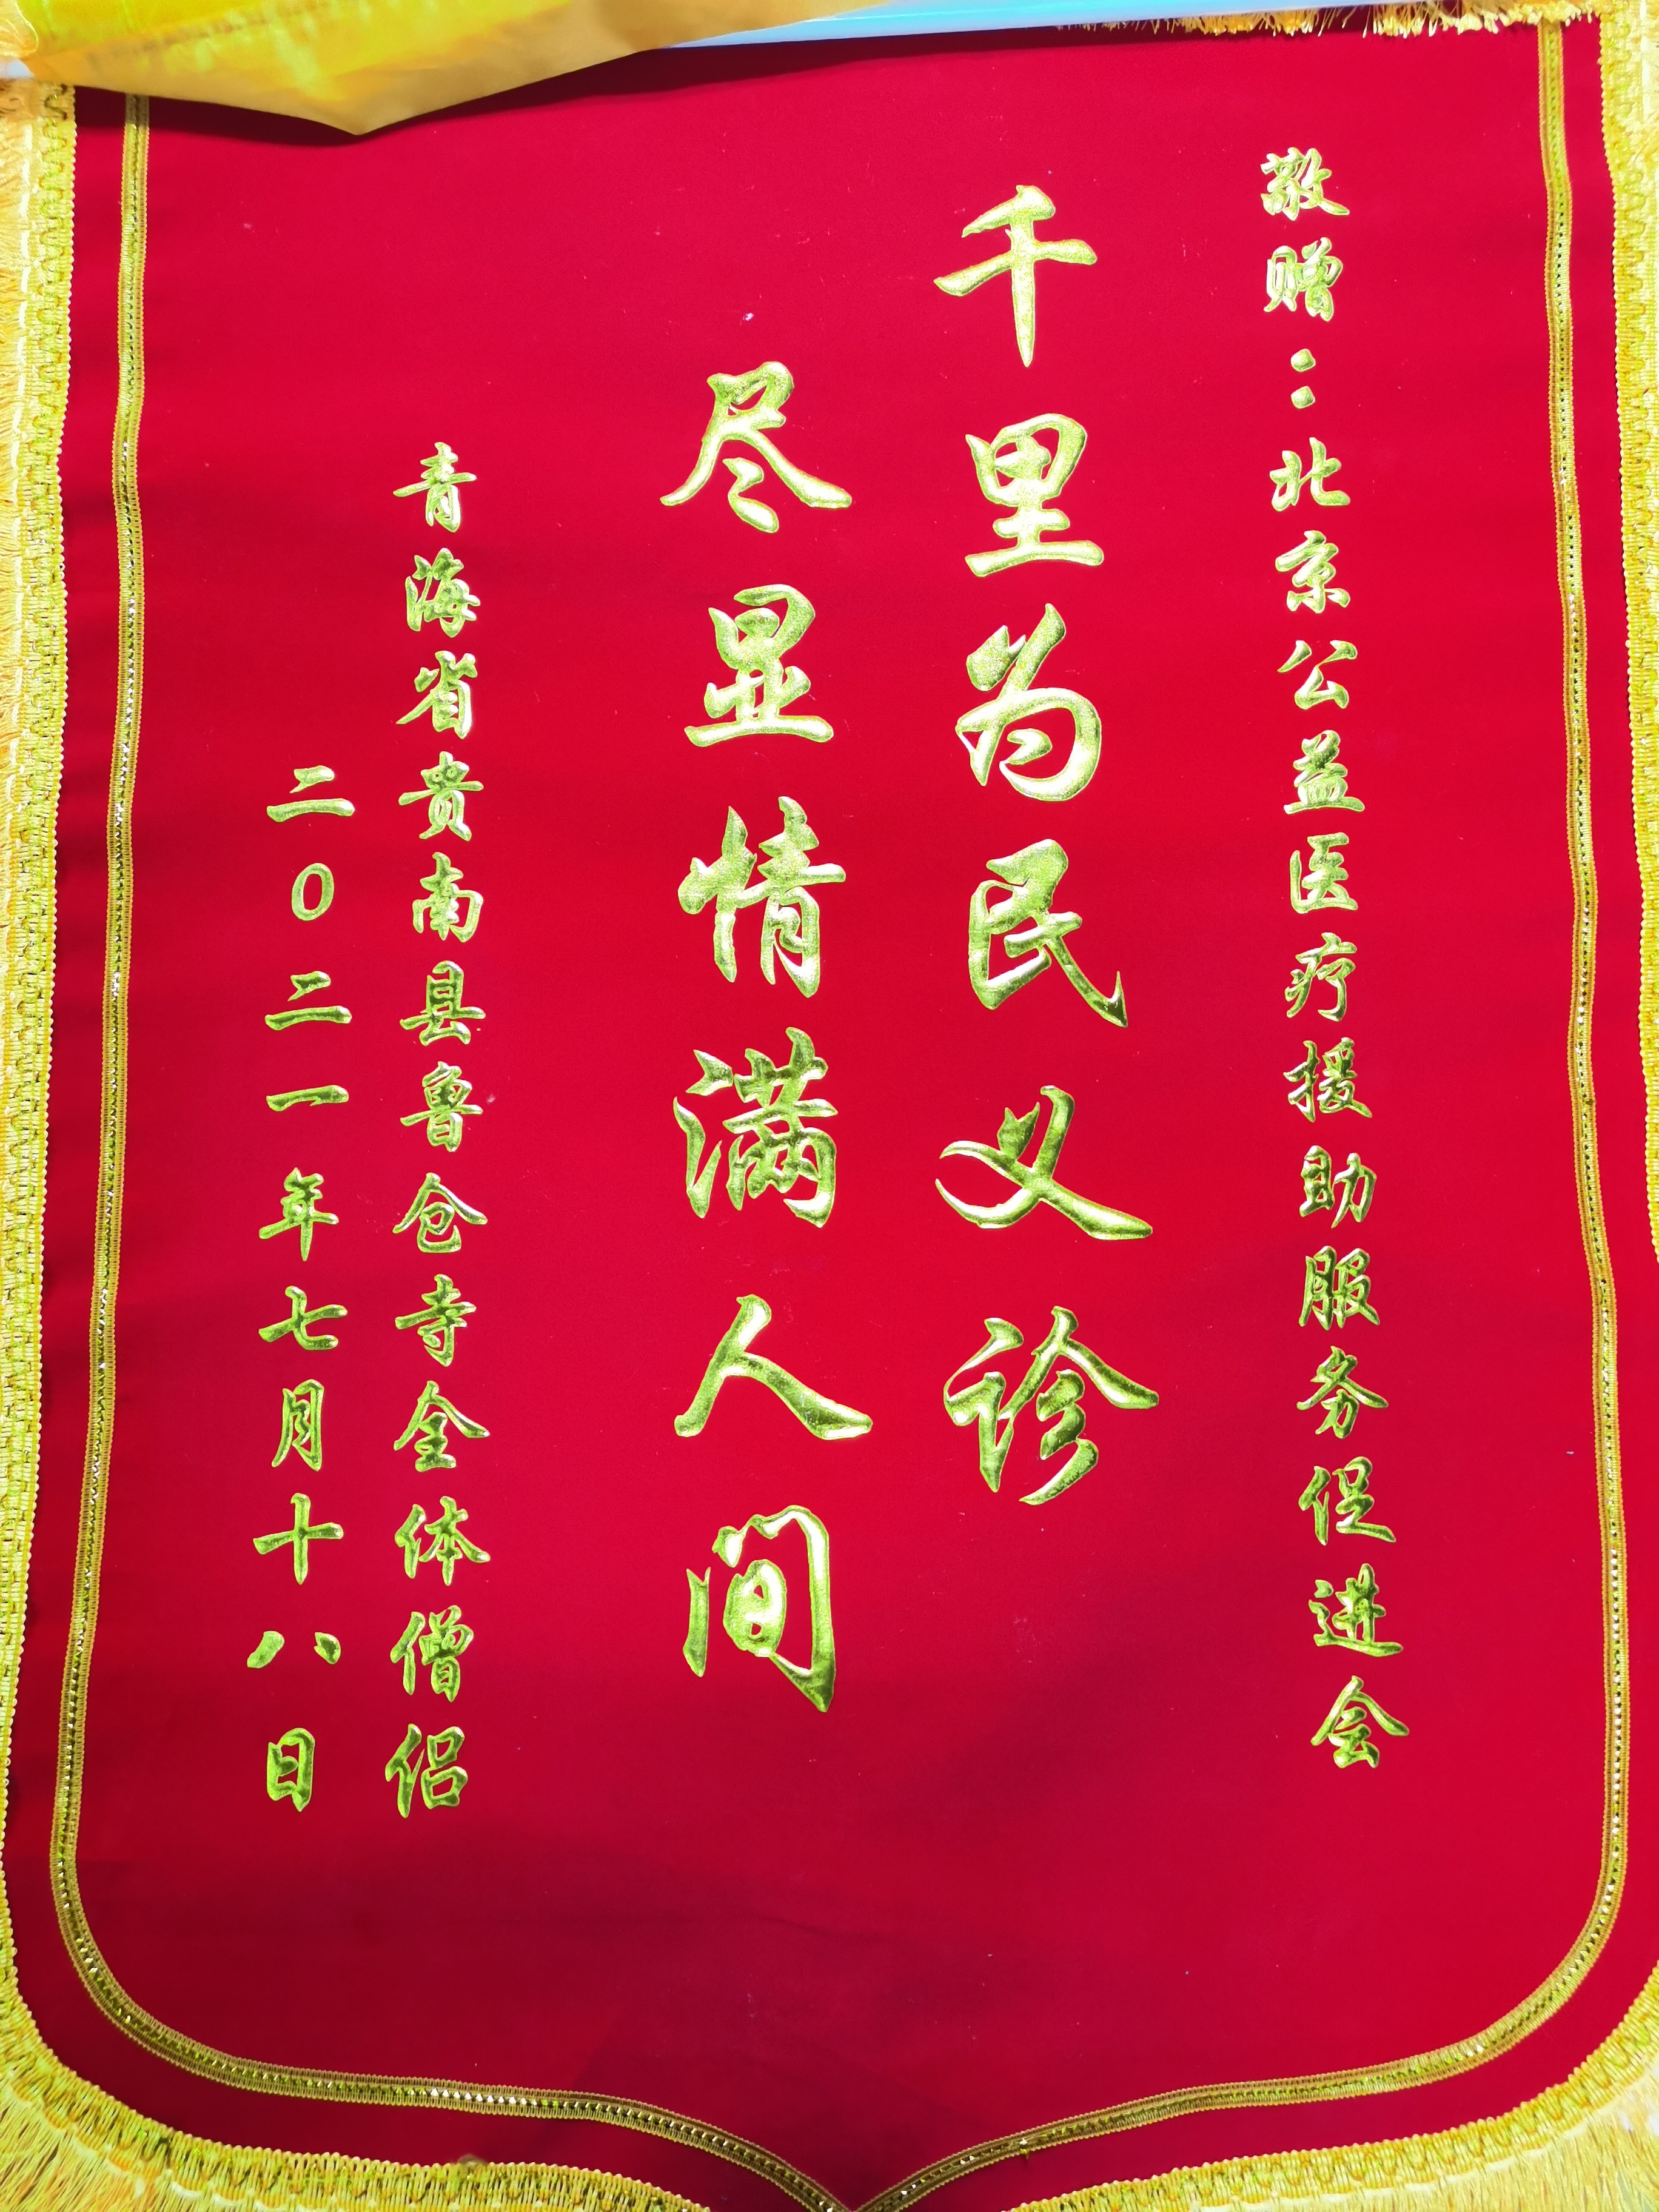 敬赠:北京公益医疗援助服务促进会
千里为民义诊
尽显情满人间
青海省贵南县鲁仓寺全体僧侣
二0二一年七月十八日